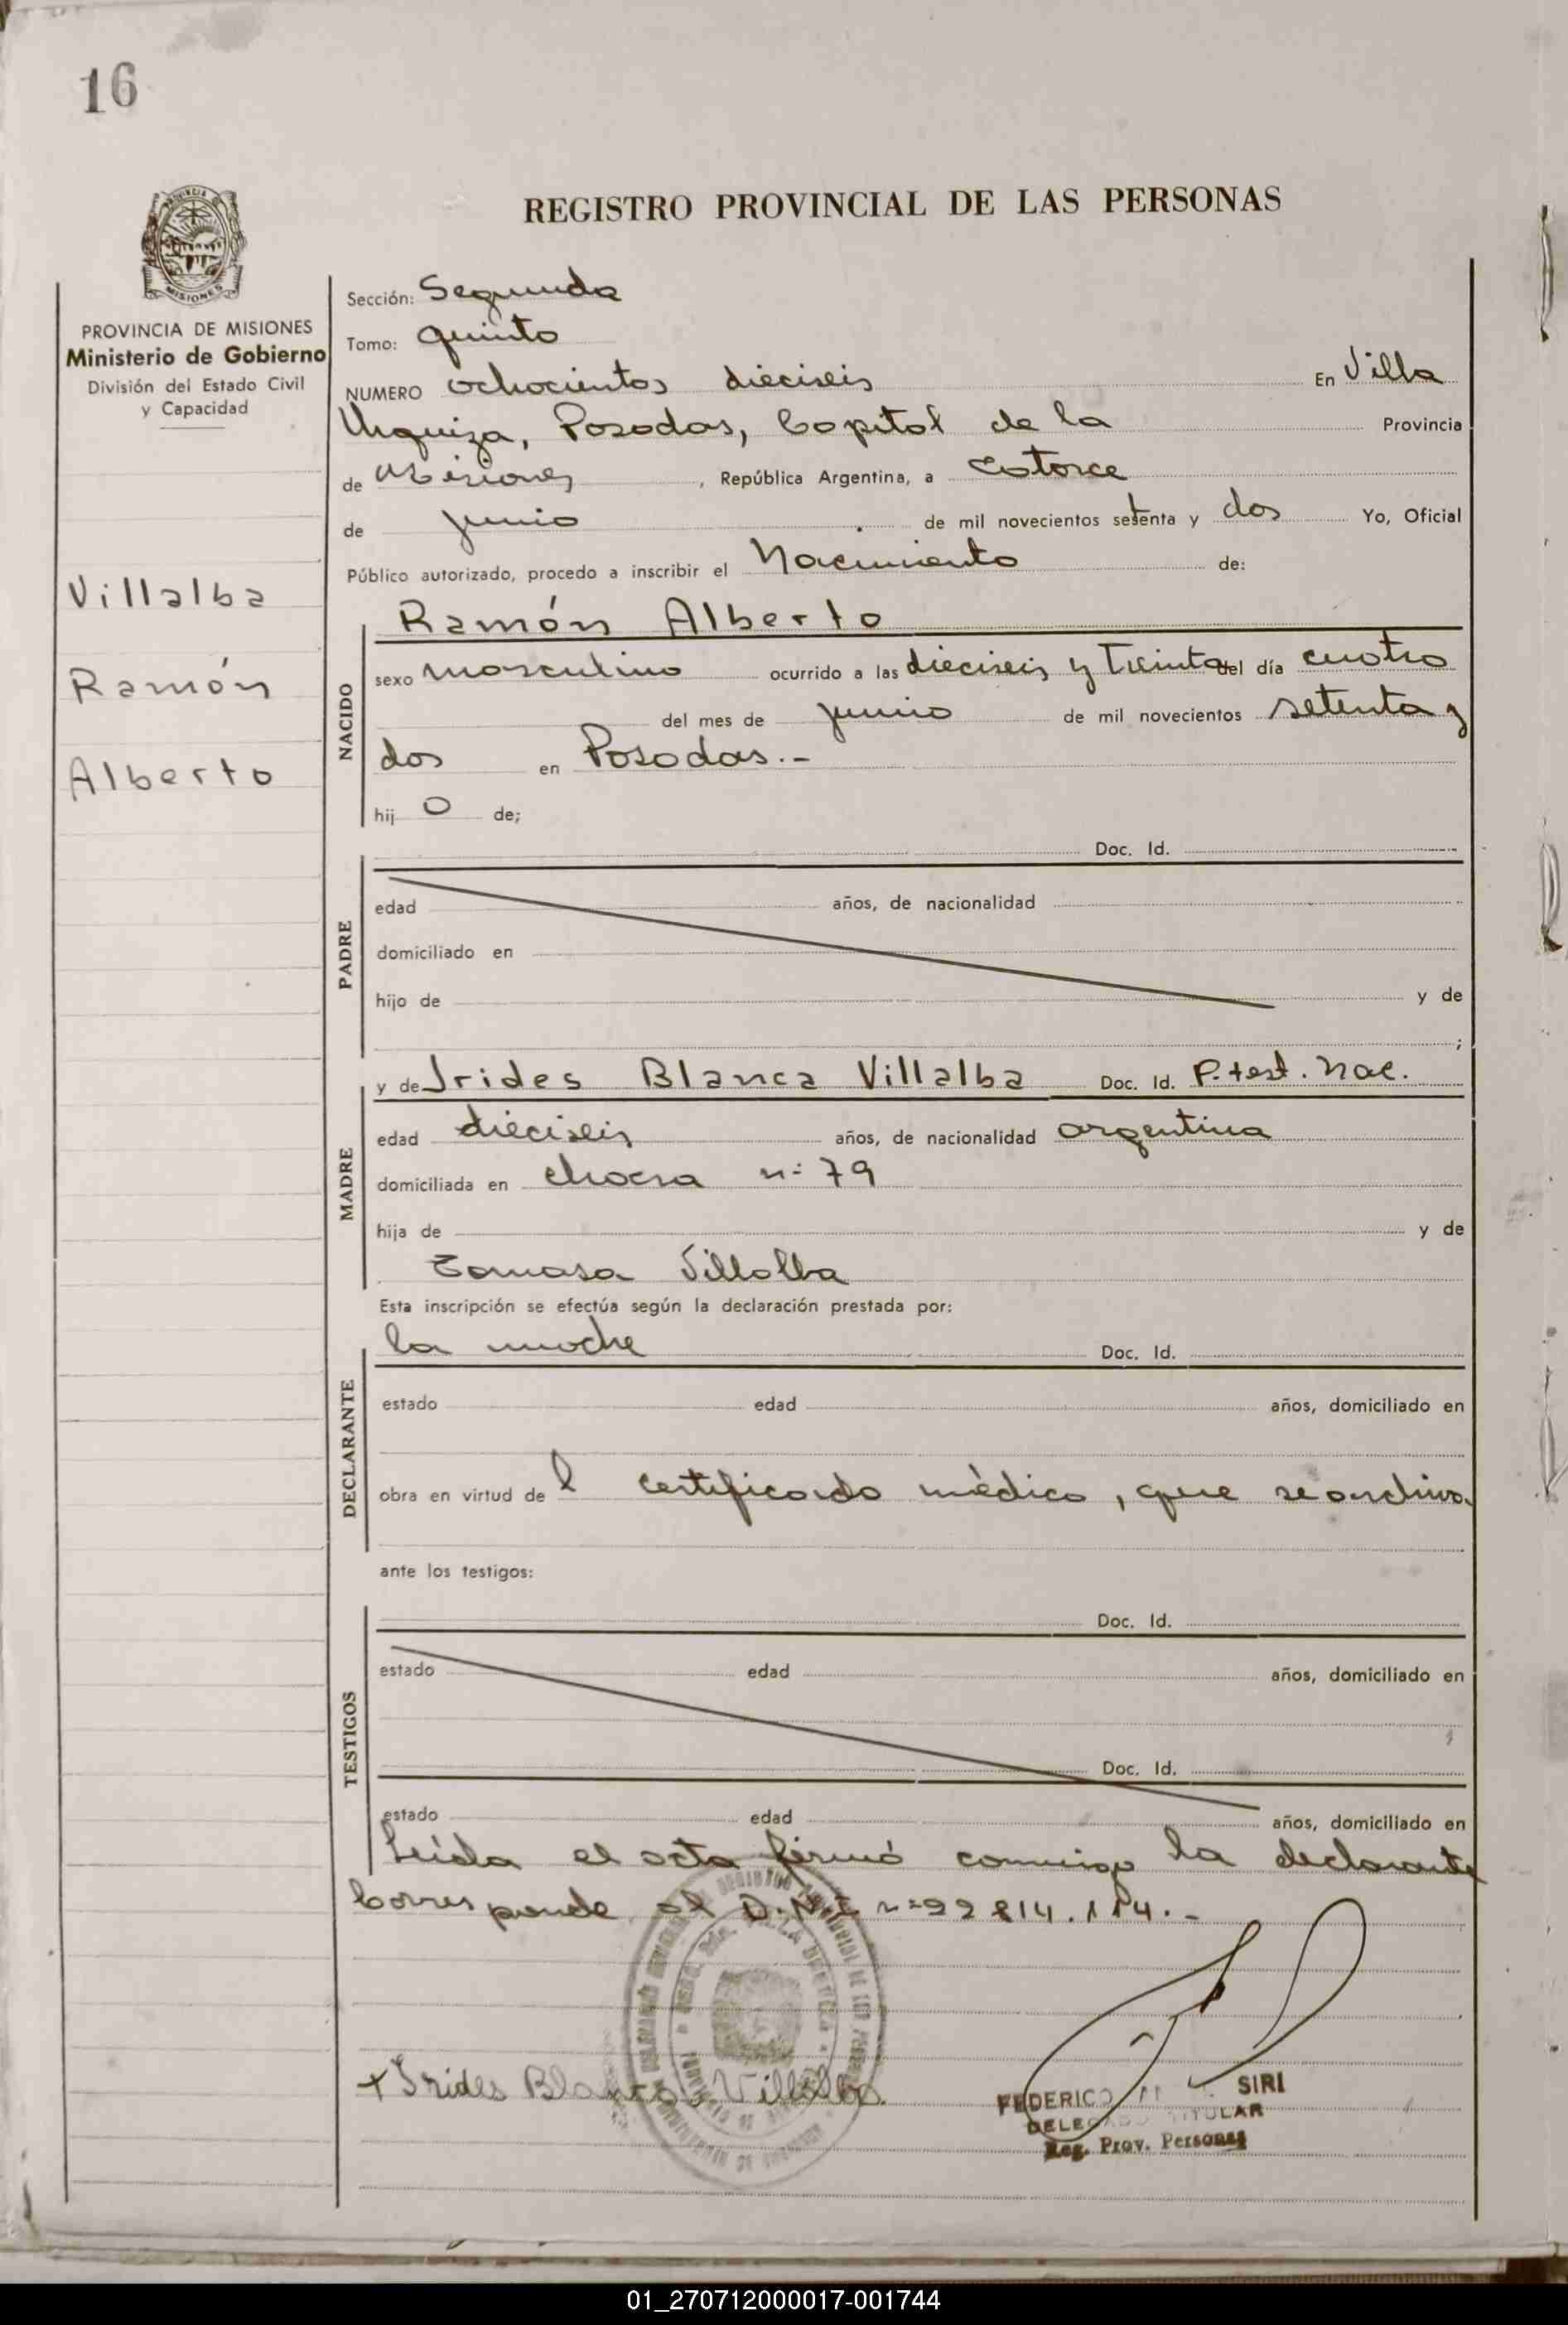 16
REGISTRO PROVINCIAL DE LAS PERSONAS
MISIONES
PROVINCIA DE MISIONES
Ministerio de Gobierno
División del Estado Civil
y Capacidad
Villalba
Ramón
Alberto
Sección: Segunda
Tomo: quinto
NUMERO ochocientos dieciseis En Villa
Urquiza, Posadas, Capital de la Provincia
de Misiones, República Argentina, a catorce
de junio de mil novecientos setenta y dos Yo, Oficial
Público autorizado, procedo a inscribir el Nacimiento de:
NACIDO
Ramón Alberto
sexo masculino ocurrido a las dieciseis y treinta del día cuatro
del mes de junio de mil novecientos setenta y
dos en Posadas.-
hij o de;
PADRE
Doc. Id.
edad años, de nacionalidad
domiciliado en
hijo de y de
;
MADRE
y de Irides Blanca Villalba Doc. Id. P. test. Nac.
edad dieciseis años, de nacionalidad argentina
domiciliada en chacra nº 79
hija de y de
Tomasa Villalba
Esta inscripción se efectúa según la declaración prestada por:
DECLARANTE
la madre Doc. Id.
estado edad años, domiciliado en
obra en virtud de l certificado médico, que se archiva
ante los testigos:
TESTIGOS
Doc. Id.
estado edad años, domiciliado en
Doc. Id.
estado edad años, domiciliado en
Leída el acta firmó conmigo la declarante
Corresponde al D.N.I nº 22 814.114.-
+ Irides Blanca Villalba.
FEDERICO SIRI
DELEGADO TITULAR
Reg. Prov. Personas
01_270712000017-001744